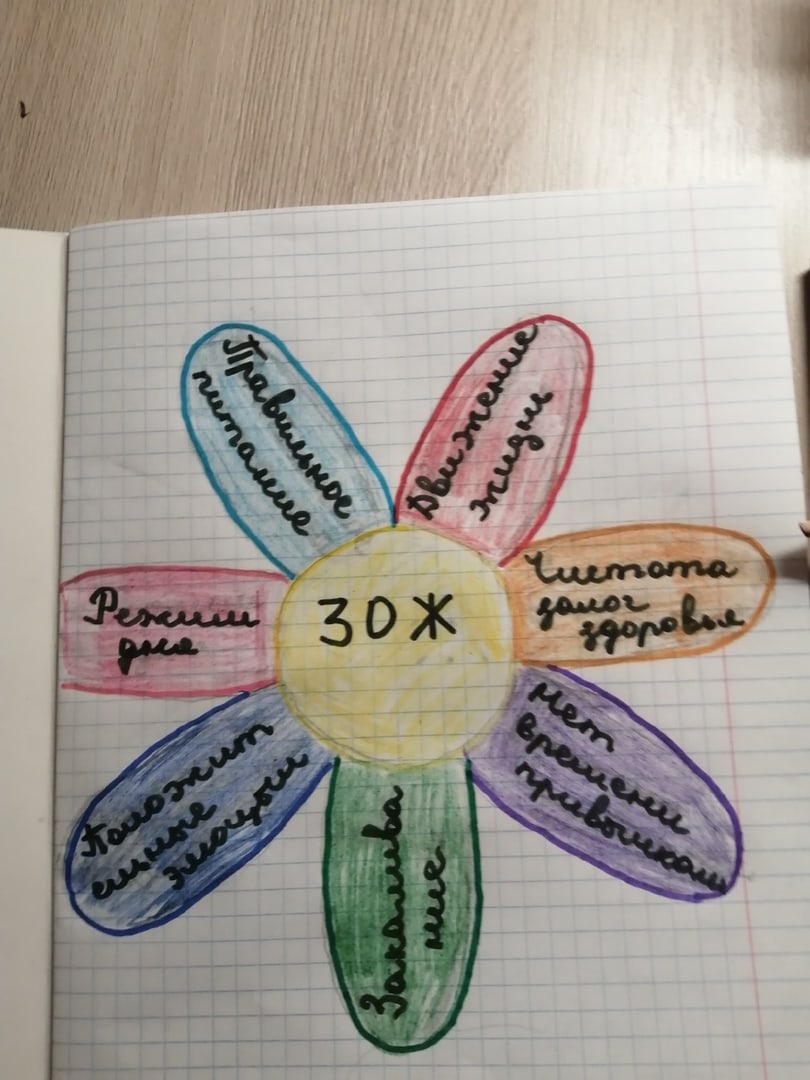 Правильное
питание
Движение
жизни
ЗОЖ
Чистота
залог
здоровья
Режим
дня
Нет
времени
привычкам
Положит
ельные
эмоцыи
Закалива
ние